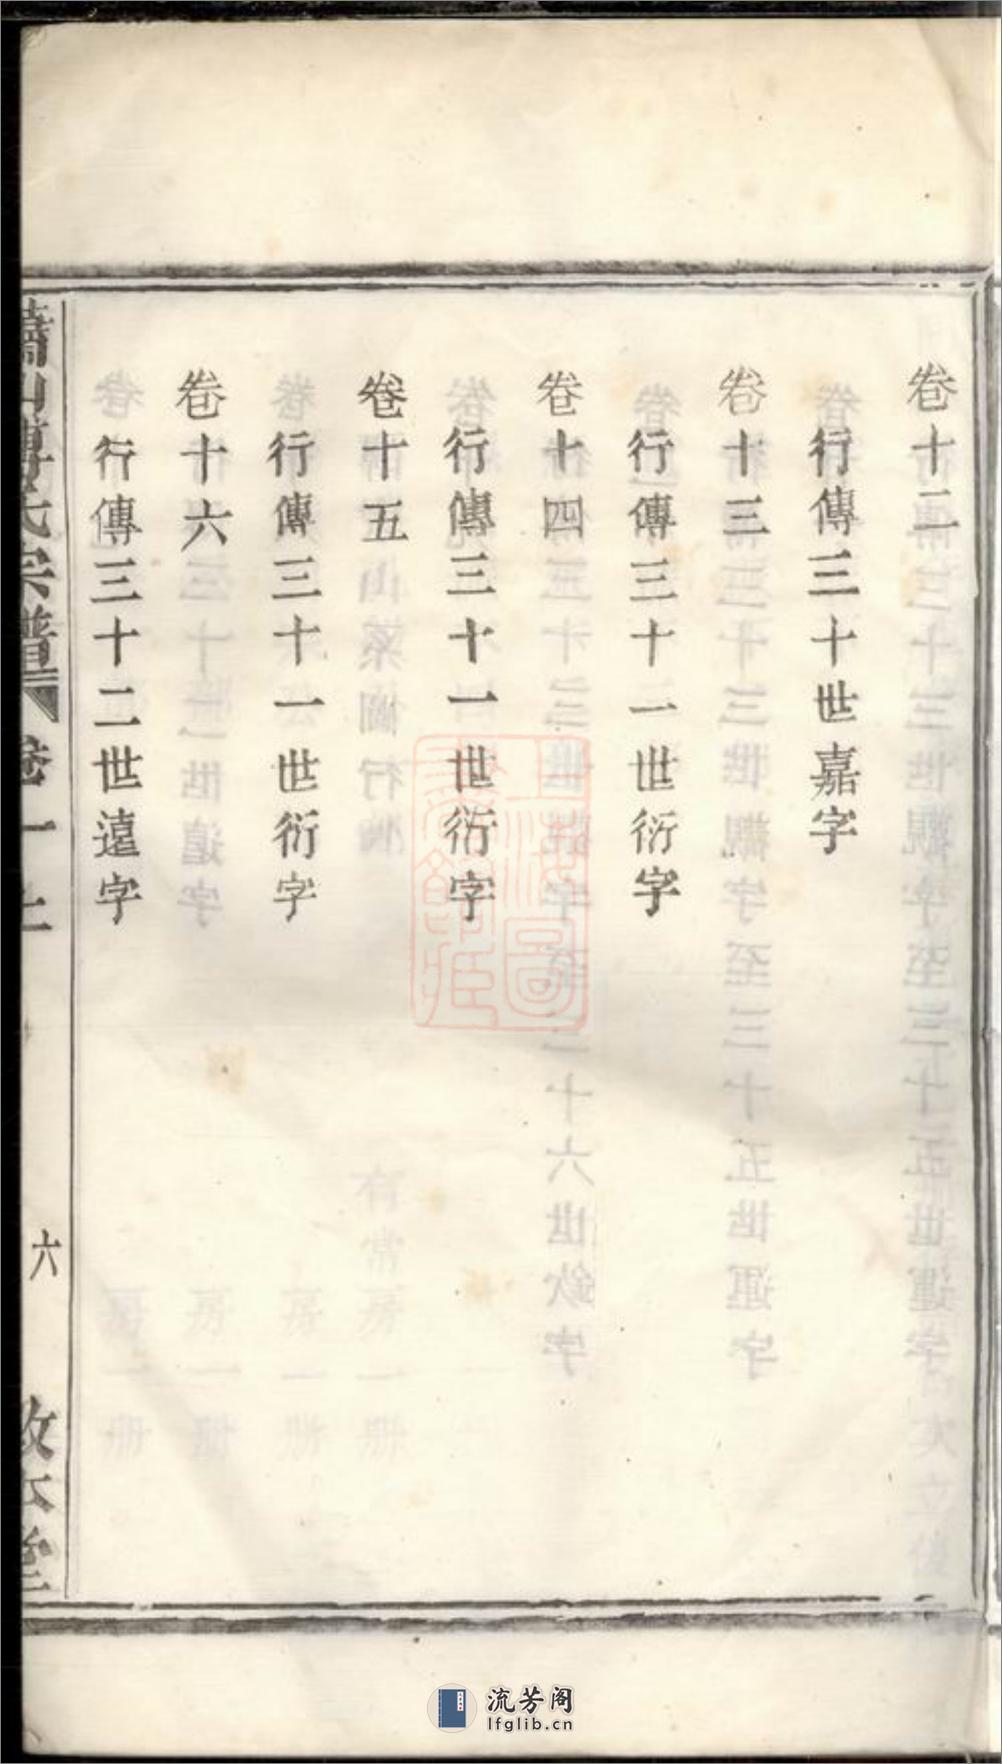 卷十二
行傳三十世嘉字
卷十三
行傳三十一世衍字
卷十四
行傳三十一世衍字
卷十五
行傳三十一世衍字
卷十六
行傳三十二世遠字
蕭山傅氏宗譜
卷一上
六
流芳阁
lfglib.cn